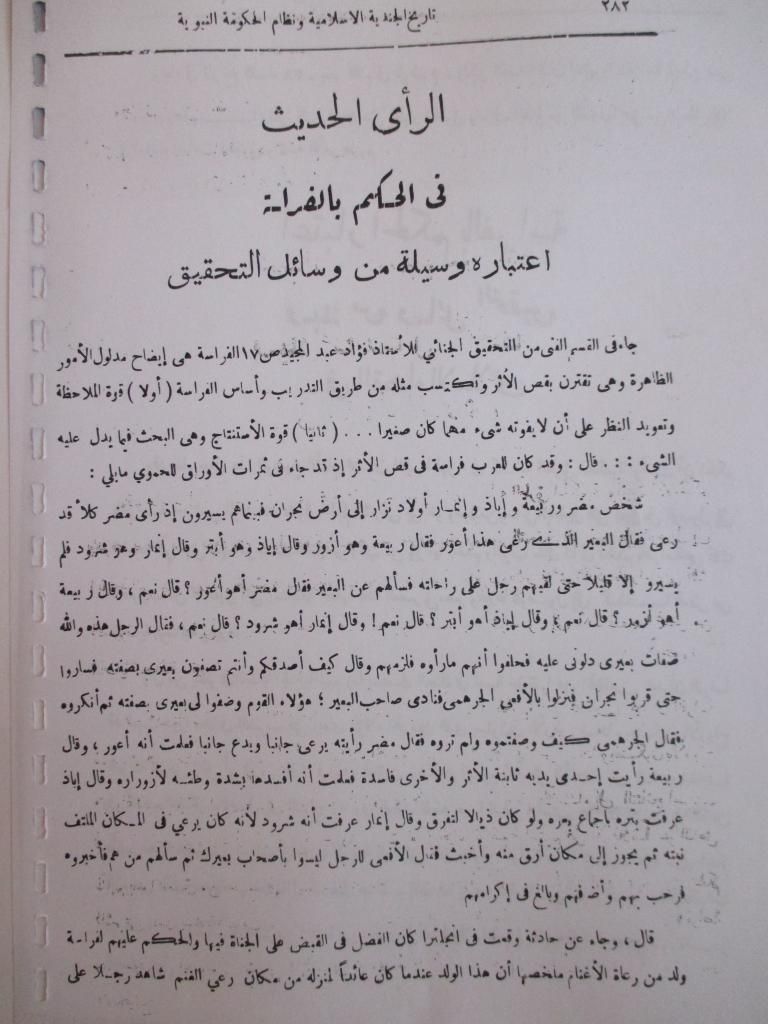 ٢٨٢
تاريخ الجندية الاسلامية ونظام الحكومة النبوية
الرأى الحديث
فى الحكم بالفراسة
اعتباره وسيلة من وسائل التحقيق
جاء فى القسم الفنى من التحقيق الجنائي للأستاذ فؤاد عبد المجيد ص ١٧ الفراسة هى إيضاح مدلول الأمور
الظاهرة وهى تقترن بقص الأثر وتكتسب مثله من طريق التدريب وأساس الفراسة ( أولا ) قوة الملاحظة
وتعويد النظر على أن لا يفوته شىء مهما كان صغيرا . . . ( ثانيا ) قوة الأستنتاج وهى البحث فيما يدل عليه
الشىء . : . قال : وقد كان للعرب فراسة فى قص الأثر إذ قد جاء فى ثمرات الأوراق للحموي مايلي :
شخص مضر وربيعة و إياذ و إنمار أولاد نزار إلى أرض نجران فبينماهم يسيرون إذ رأى مضر كلأ قد
رعى فقال البعير الذى رعى هذا أعور فقال ربيعة وهو أزور وقال إياذ وهو أبتر وقال إنمار وهو شرود فلم
يسيرو إلا قليلا حتى لقيهم رجل على راحلته فسألهم عن البعير فقال مضر أهو أعور ؟ قال نعم ، وقال ربيعة
أهو أزور ؟ قال نعم ، وقال إياذ أهو أبتر ؟ قال نعم ! وقال إنمار أهو شرود ؟ قال نعم ، فقال الرجل هذه والله
صفات بعيرى دلونى عليه فحلفوا أنهم مارأوه فلزمهم وقال كيف أصدقكم وأنتم تصفون بعيرى بصفته فساروا
حتى قربوا نجران فنزلوا بالأفعى الجرهمى فنادى صاحب البعير ؛ هؤلاء القوم وصفوا لى بعيرى بصفته ثم أنكروه
فقال الجرهمى كيف وصفتموه ولم تروه فقال مضر رأيته يرعى جانبا ويدع جانبا فعلمت أنه أعور ، وقال
ربيعة رأيت إحدى يديه ثابتة الأثر والأخرى فاسدة فعلمت أنه أفسدها بشدة وطئه لأزوراره وقال إياذ
عرفت بتره باجماع بعره ولو كان ذيالا لتفرق وقال إنمار عرفت أنه شرود لأنه كان يرعي في المكان الملتف
نبته ثم يجوز إلى مكان أرق منه وأخبث فقال الأفعى للرجل ليسوا بأصحاب بعيرك ثم سألهم من هم فأخبروه
فرحب بهم وأضافهم وبالغ فى إكرامهم
قال ، وجاء عن حادثة وقعت فى انجلترا كان الفضل فى القبض على الجناة فيها والحكم عليهم لفراسة
ولد من رعاة الأغنام ملخصها أن هذا الولد عندما كان عائداً لمنزله من مكان رعي الغنم شاهد رجلا على